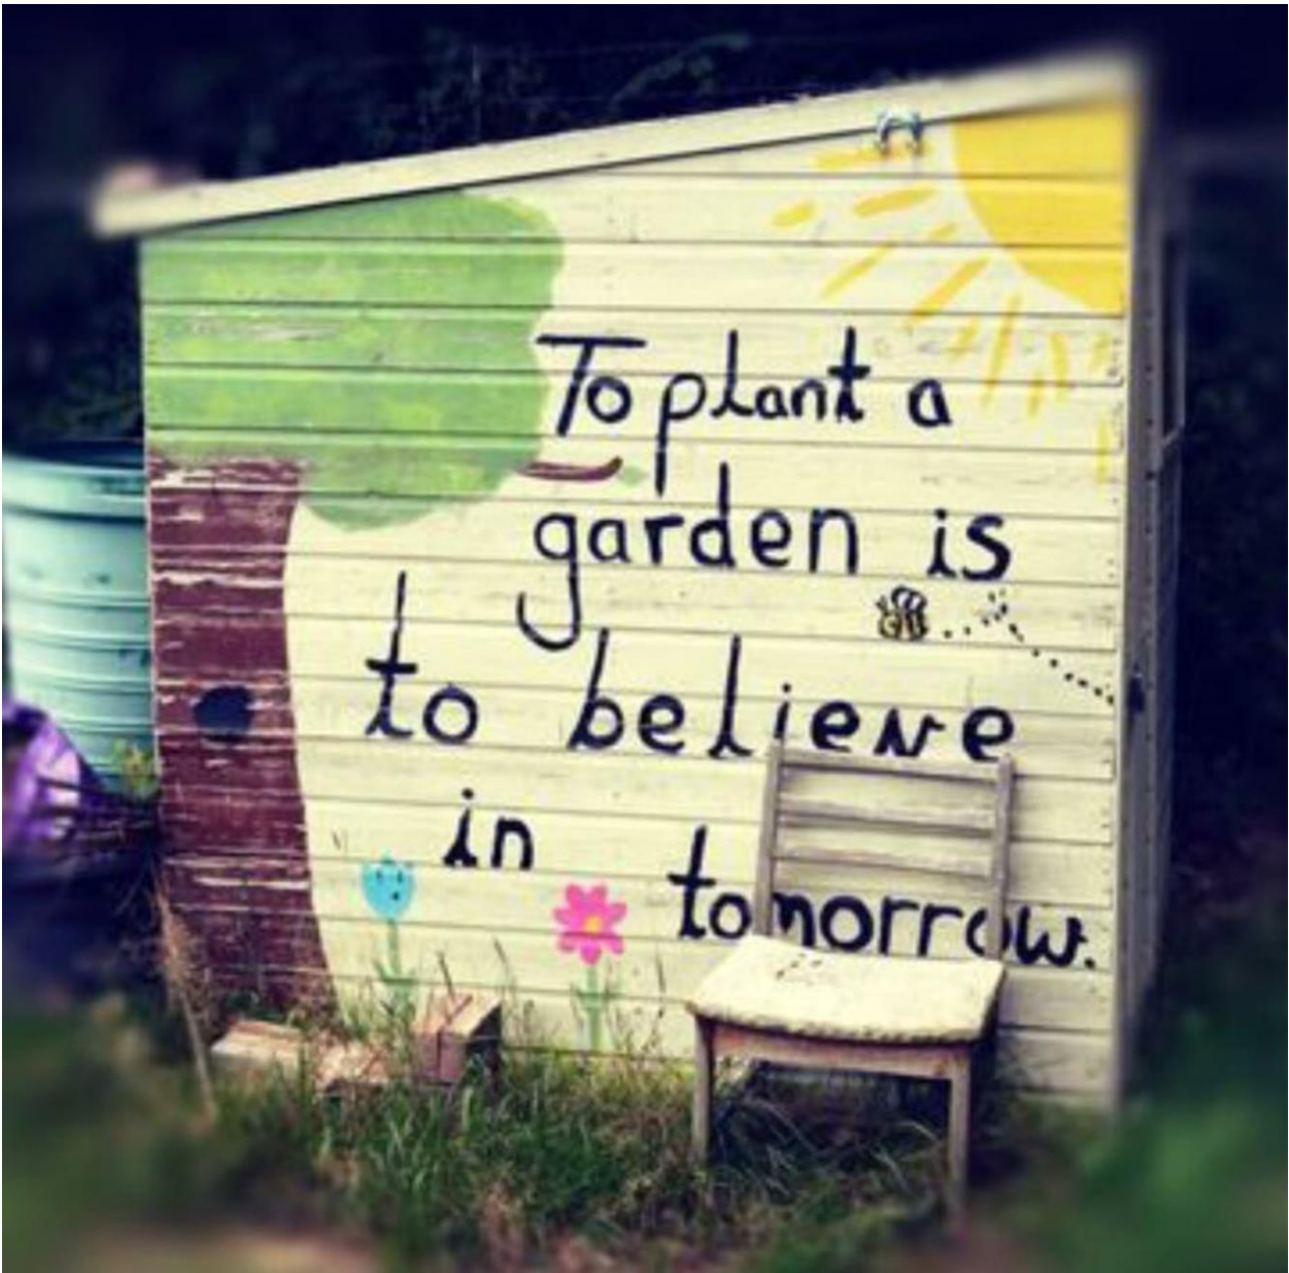 To plant a
garden is
to believe
in tomorrow.